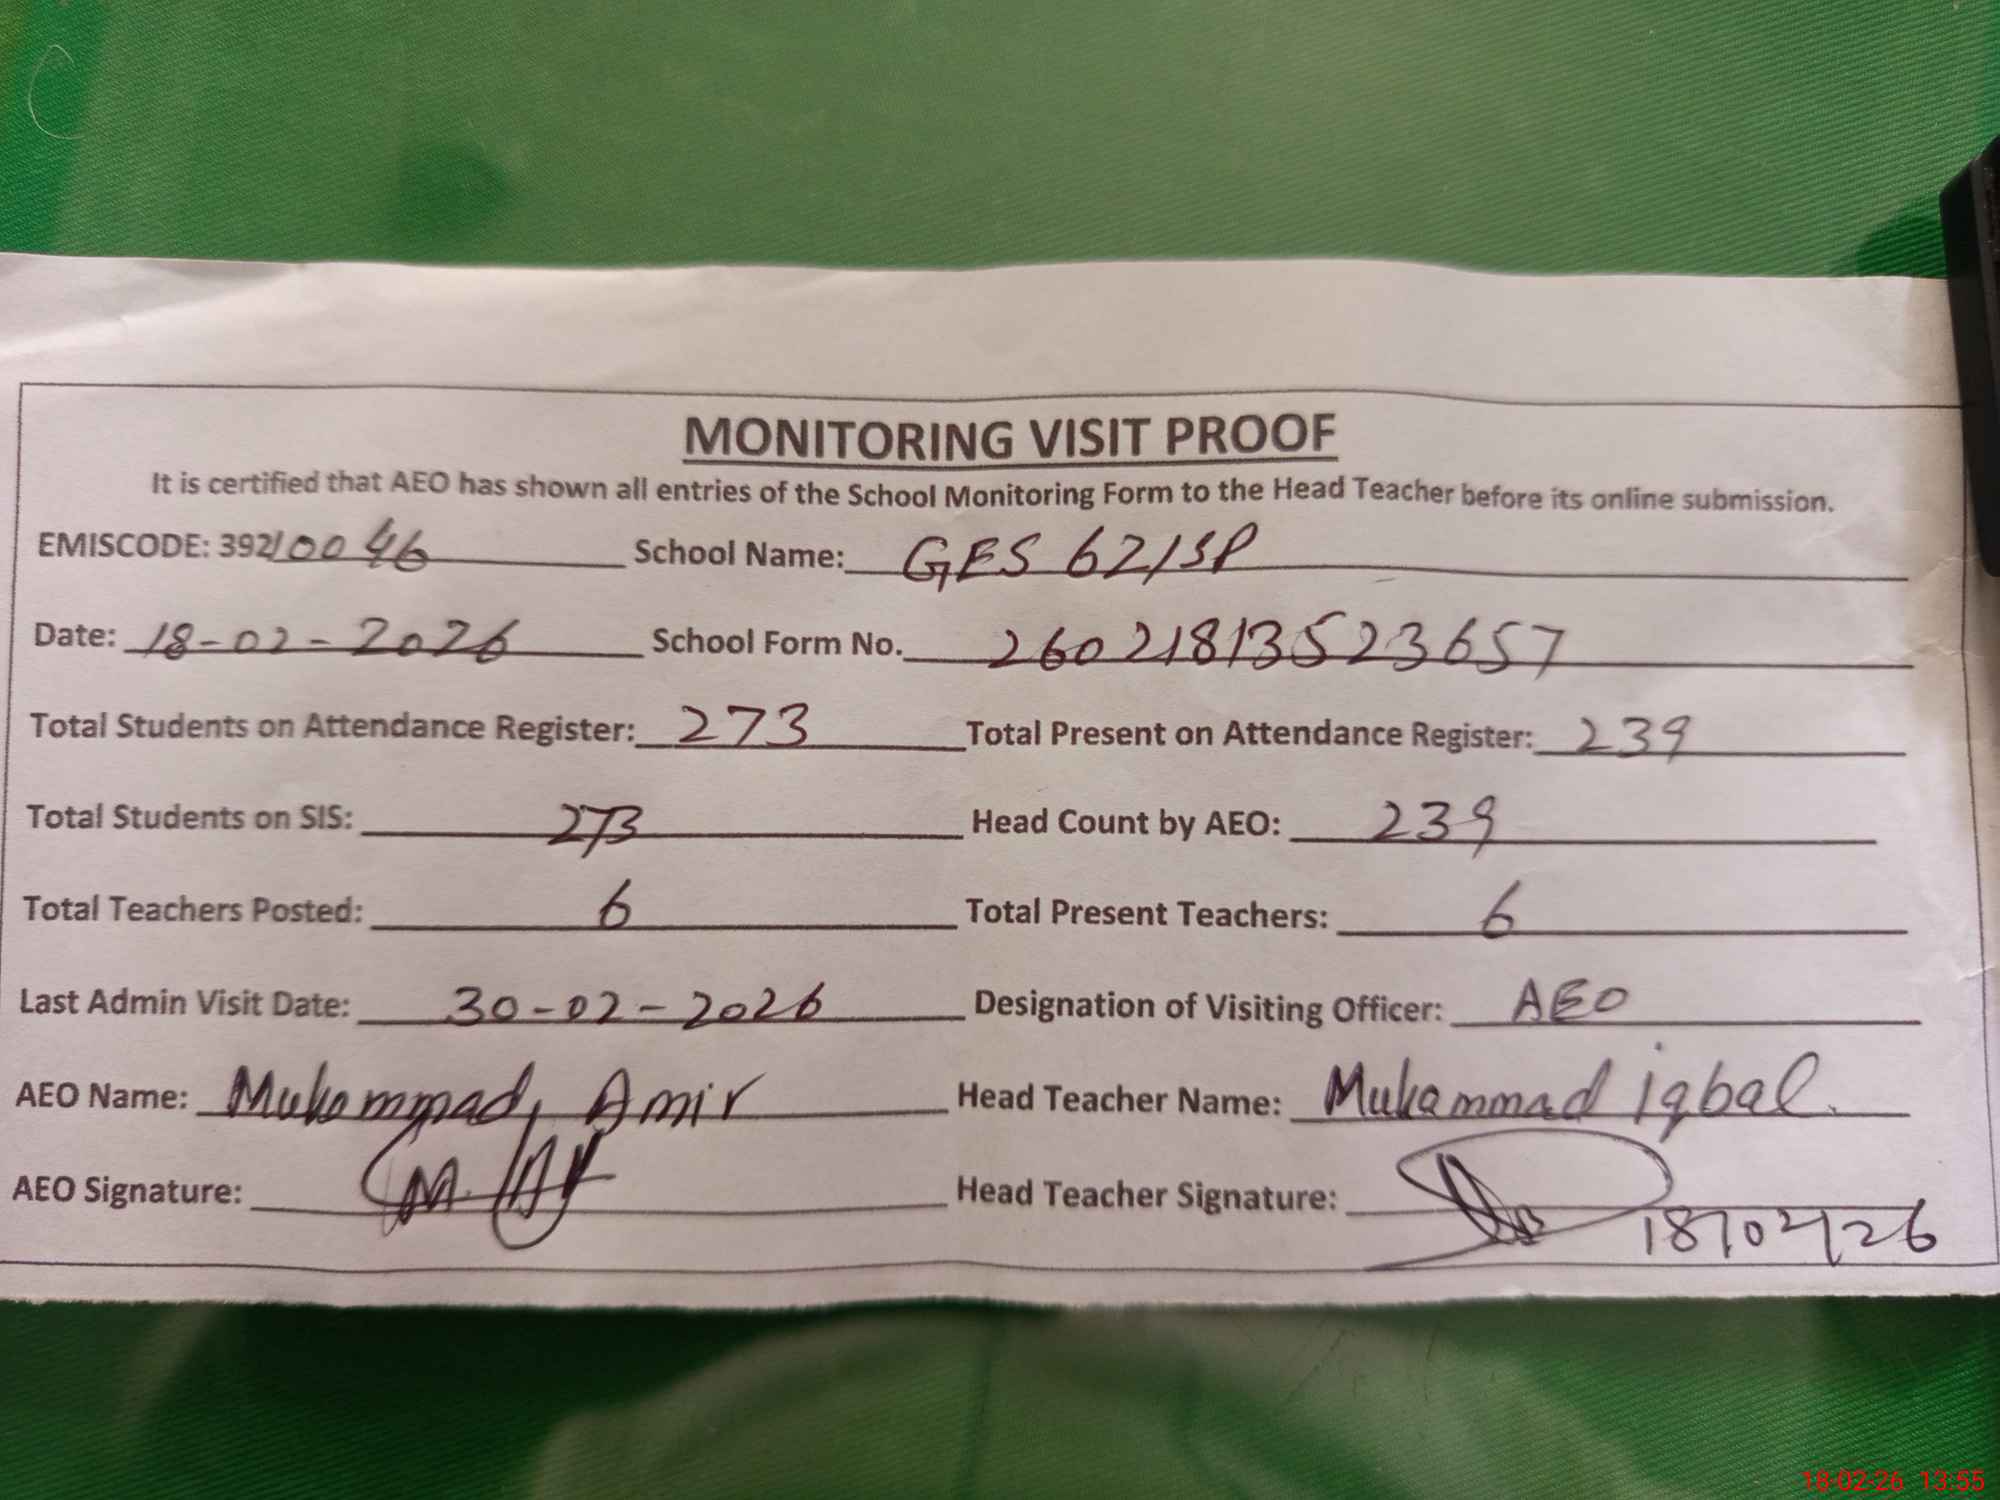 MONITORING VISIT PROOF
It is certified that AEO has shown all entries of the School Monitoring Form to the Head Teacher before its online submission.
EMISCODE: 39210046 School Name: GES 62/SP
Date: 18-02-2026 School Form No. 26021813523657
Total Students on Attendance Register: 273 Total Present on Attendance Register: 239
Total Students on SIS: 273 Head Count by AEO: 239
Total Teachers Posted: 6 Total Present Teachers: 6
Last Admin Visit Date: 30-02-2026 Designation of Visiting Officer: AEO
AEO Name: Muhammad Amir Head Teacher Name: Muhammad iqbal
AEO Signature: Head Teacher Signature: 18/02/26
18-02-26 13:55